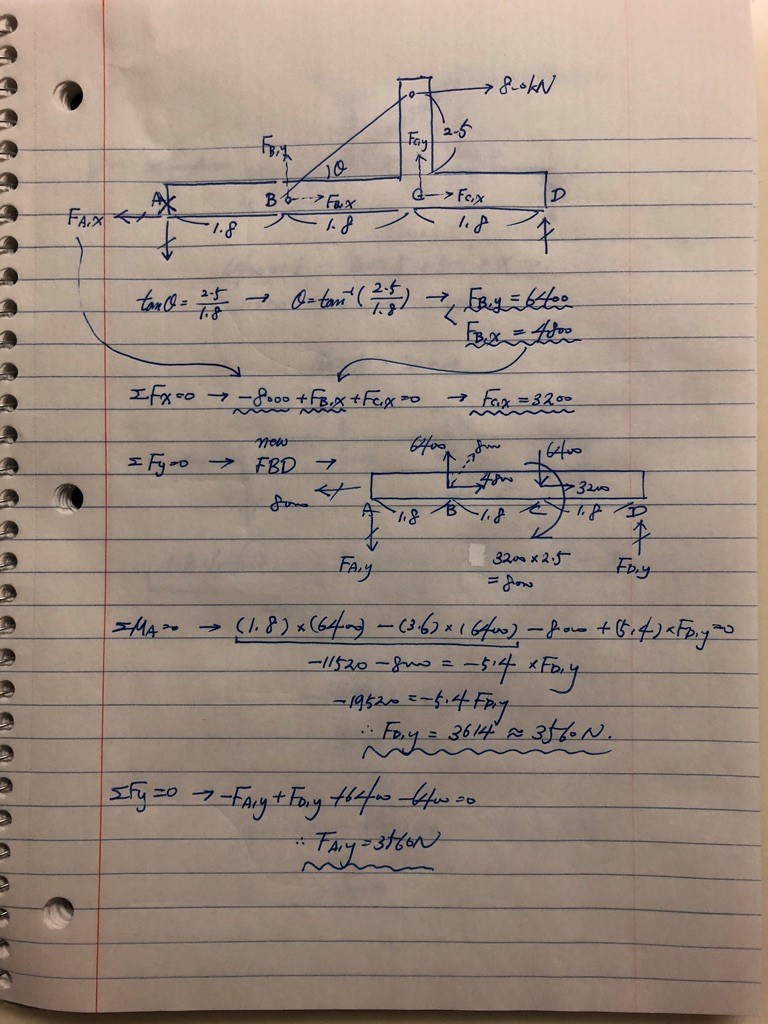 8.0kN
2.5
F_B,y
F_C,y
θ
A B F_B,x C F_C,x D
F_A,x
1.8 1.8 1.8
tanθ = 2.5/1.8 → θ = tan⁻¹(2.5/1.8) → F_B,y = 6400
F_B,x = 4800
ΣFx=0 → -8000 + F_B,x + F_C,x = 0 → F_C,x = 3200
ΣFy=0 → new FBD →
6400 8000 6400
8000 4800 3200
A B C D
1.8 1.8 1.8
F_A,y 3200 × 2.5 F_D,y
= 8000
ΣM_A=0 → (1.8)×(6400) - (3.6)×(6400) - 8000 + (5.4)×F_D,y=0
-11520 - 8000 = -5.4 × F_D,y
-19520 = -5.4 F_D,y
∴ F_D,y = 3614 ≈ 3560N.
ΣFy=0 → -F_A,y + F_D,y + 6400 - 6400 = 0
∴ F_A,y = 3560N